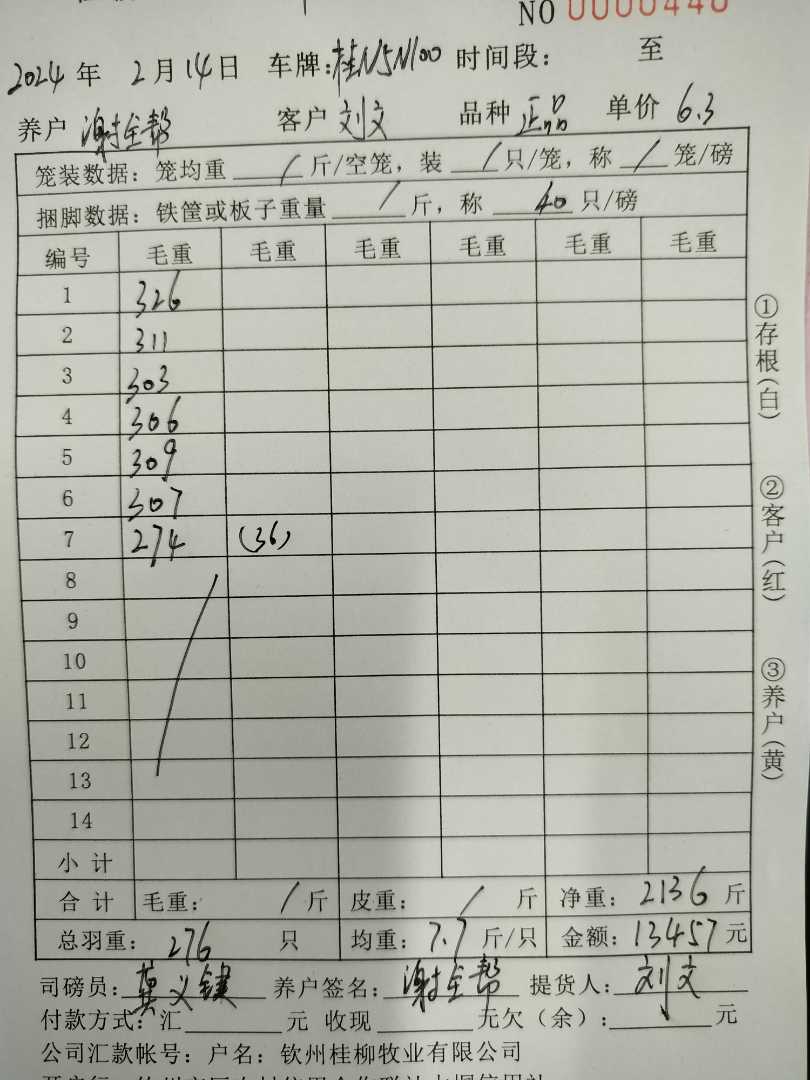 NO 0000440
2024 年 2 月 14 日 车牌:桂N5N100 时间段: 至
养户 谢全帮 客户 刘文 品种 正品 单价 6.3
笼装数据: 笼均重 / 斤/空笼, 装 / 只/笼, 称 / 笼/磅
捆脚数据: 铁筐或板子重量 / 斤, 称 40 只/磅
编号 毛重 毛重 毛重 毛重 毛重 毛重
1 326
2 311
3 303
4 306
5 309
6 307
7 274 (36)
8
9
10
11
12
13
14
小计
合计 毛重: / 斤 皮重: / 斤 净重: 2136 斤
总羽重: 276 只 均重: 7.7 斤/只 金额: 13457 元
司磅员: 莫义键 养户签名: 谢全帮 提货人: 刘文
付款方式: 汇 元 收现 无欠(余): 元
公司汇款帐号: 户名: 钦州桂柳牧业有限公司
①存根(白)
②客户(红)
③养户(黄)